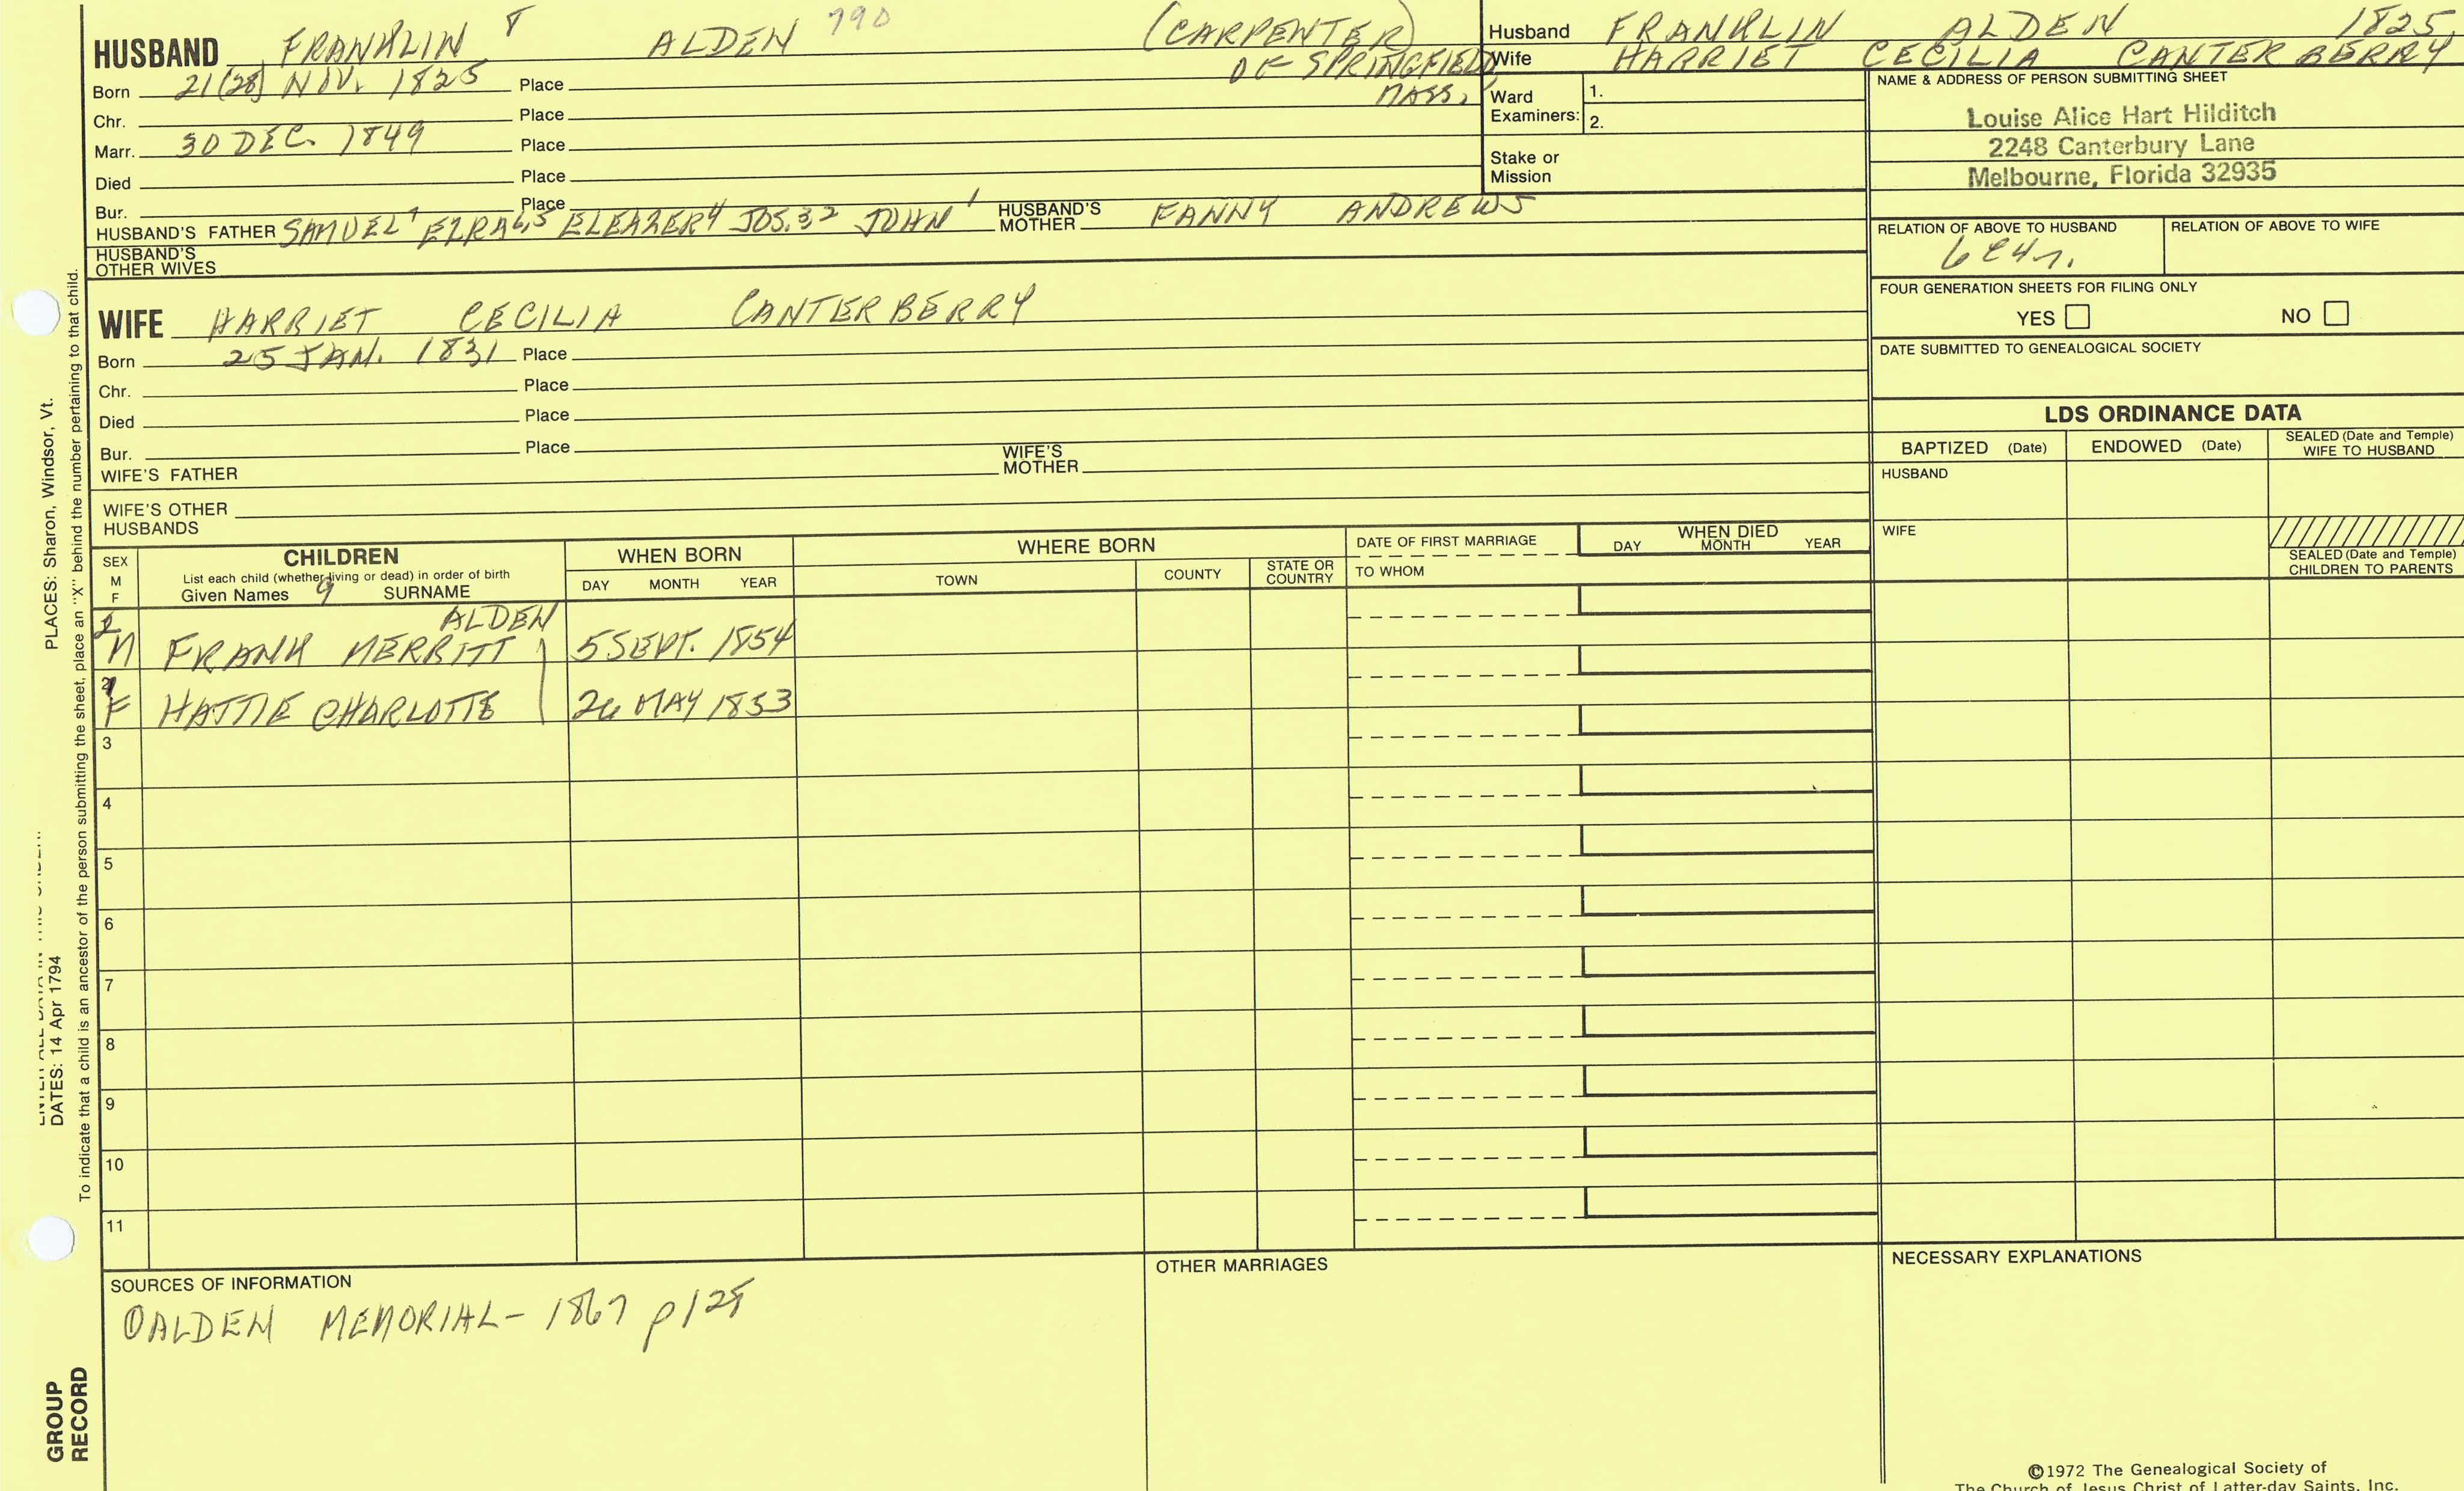 HUSBAND FRANKLIN 8 ALDEN 790 (CARPENTER)
OF SPRINGFIELD,
MASS.
Born 21(28) NOV. 1825 Place
Chr. Place
Marr. 30 DEC. 1849 Place
Died Place
Bur. Place
HUSBAND'S FATHER SAMUEL7 EZRA6,5 ELEAZER4 JOS.32 JOHN1 HUSBAND'S MOTHER FANNY ANDREWS
HUSBAND'S OTHER WIVES
WIFE HARRIET CECILIA CANTERBERRY
Born 25 JAN. 1831 Place
Chr. Place
Died Place
Bur. Place
WIFE'S FATHER WIFE'S MOTHER
WIFE'S OTHER HUSBANDS
Husband FRANKLIN ALDEN 1825
Wife HARRIET CECILIA CANTERBERRY
Ward Examiners: 1.
2.
Stake or Mission
NAME & ADDRESS OF PERSON SUBMITTING SHEET
Louise Alice Hart Hilditch
2248 Canterbury Lane
Melbourne, Florida 32935
RELATION OF ABOVE TO HUSBAND RELATION OF ABOVE TO WIFE
6C4r.
FOUR GENERATION SHEETS FOR FILING ONLY
YES NO
DATE SUBMITTED TO GENEALOGICAL SOCIETY
LDS ORDINANCE DATA
BAPTIZED (Date) ENDOWED (Date) SEALED (Date and Temple) WIFE TO HUSBAND
HUSBAND
WIFE
SEALED (Date and Temple) CHILDREN TO PARENTS
SEX M F
CHILDREN
List each child (whether living or dead) in order of birth
Given Names 9 SURNAME
WHEN BORN
DAY MONTH YEAR
WHERE BORN
TOWN COUNTY STATE OR COUNTRY
DATE OF FIRST MARRIAGE
TO WHOM
WHEN DIED
DAY MONTH YEAR
ALDEN
2 M FRANK MERRITT 5 SEPT. 1854
1 F HATTIE CHARLOTTE 26 MAY 1853
3
4
5
6
7
8
9
10
11
SOURCES OF INFORMATION
① ALDEN MEMORIAL - 1867 p128
OTHER MARRIAGES
NECESSARY EXPLANATIONS
©1972 The Genealogical Society of
The Church of Jesus Christ of Latter-day Saints, Inc.
PLACES: Sharon, Windsor, Vt.
DATES: 14 Apr 1794
To indicate that a child is an ancestor of the person submitting the sheet, place an "X" behind the number pertaining to that child.
GROUP
RECORD